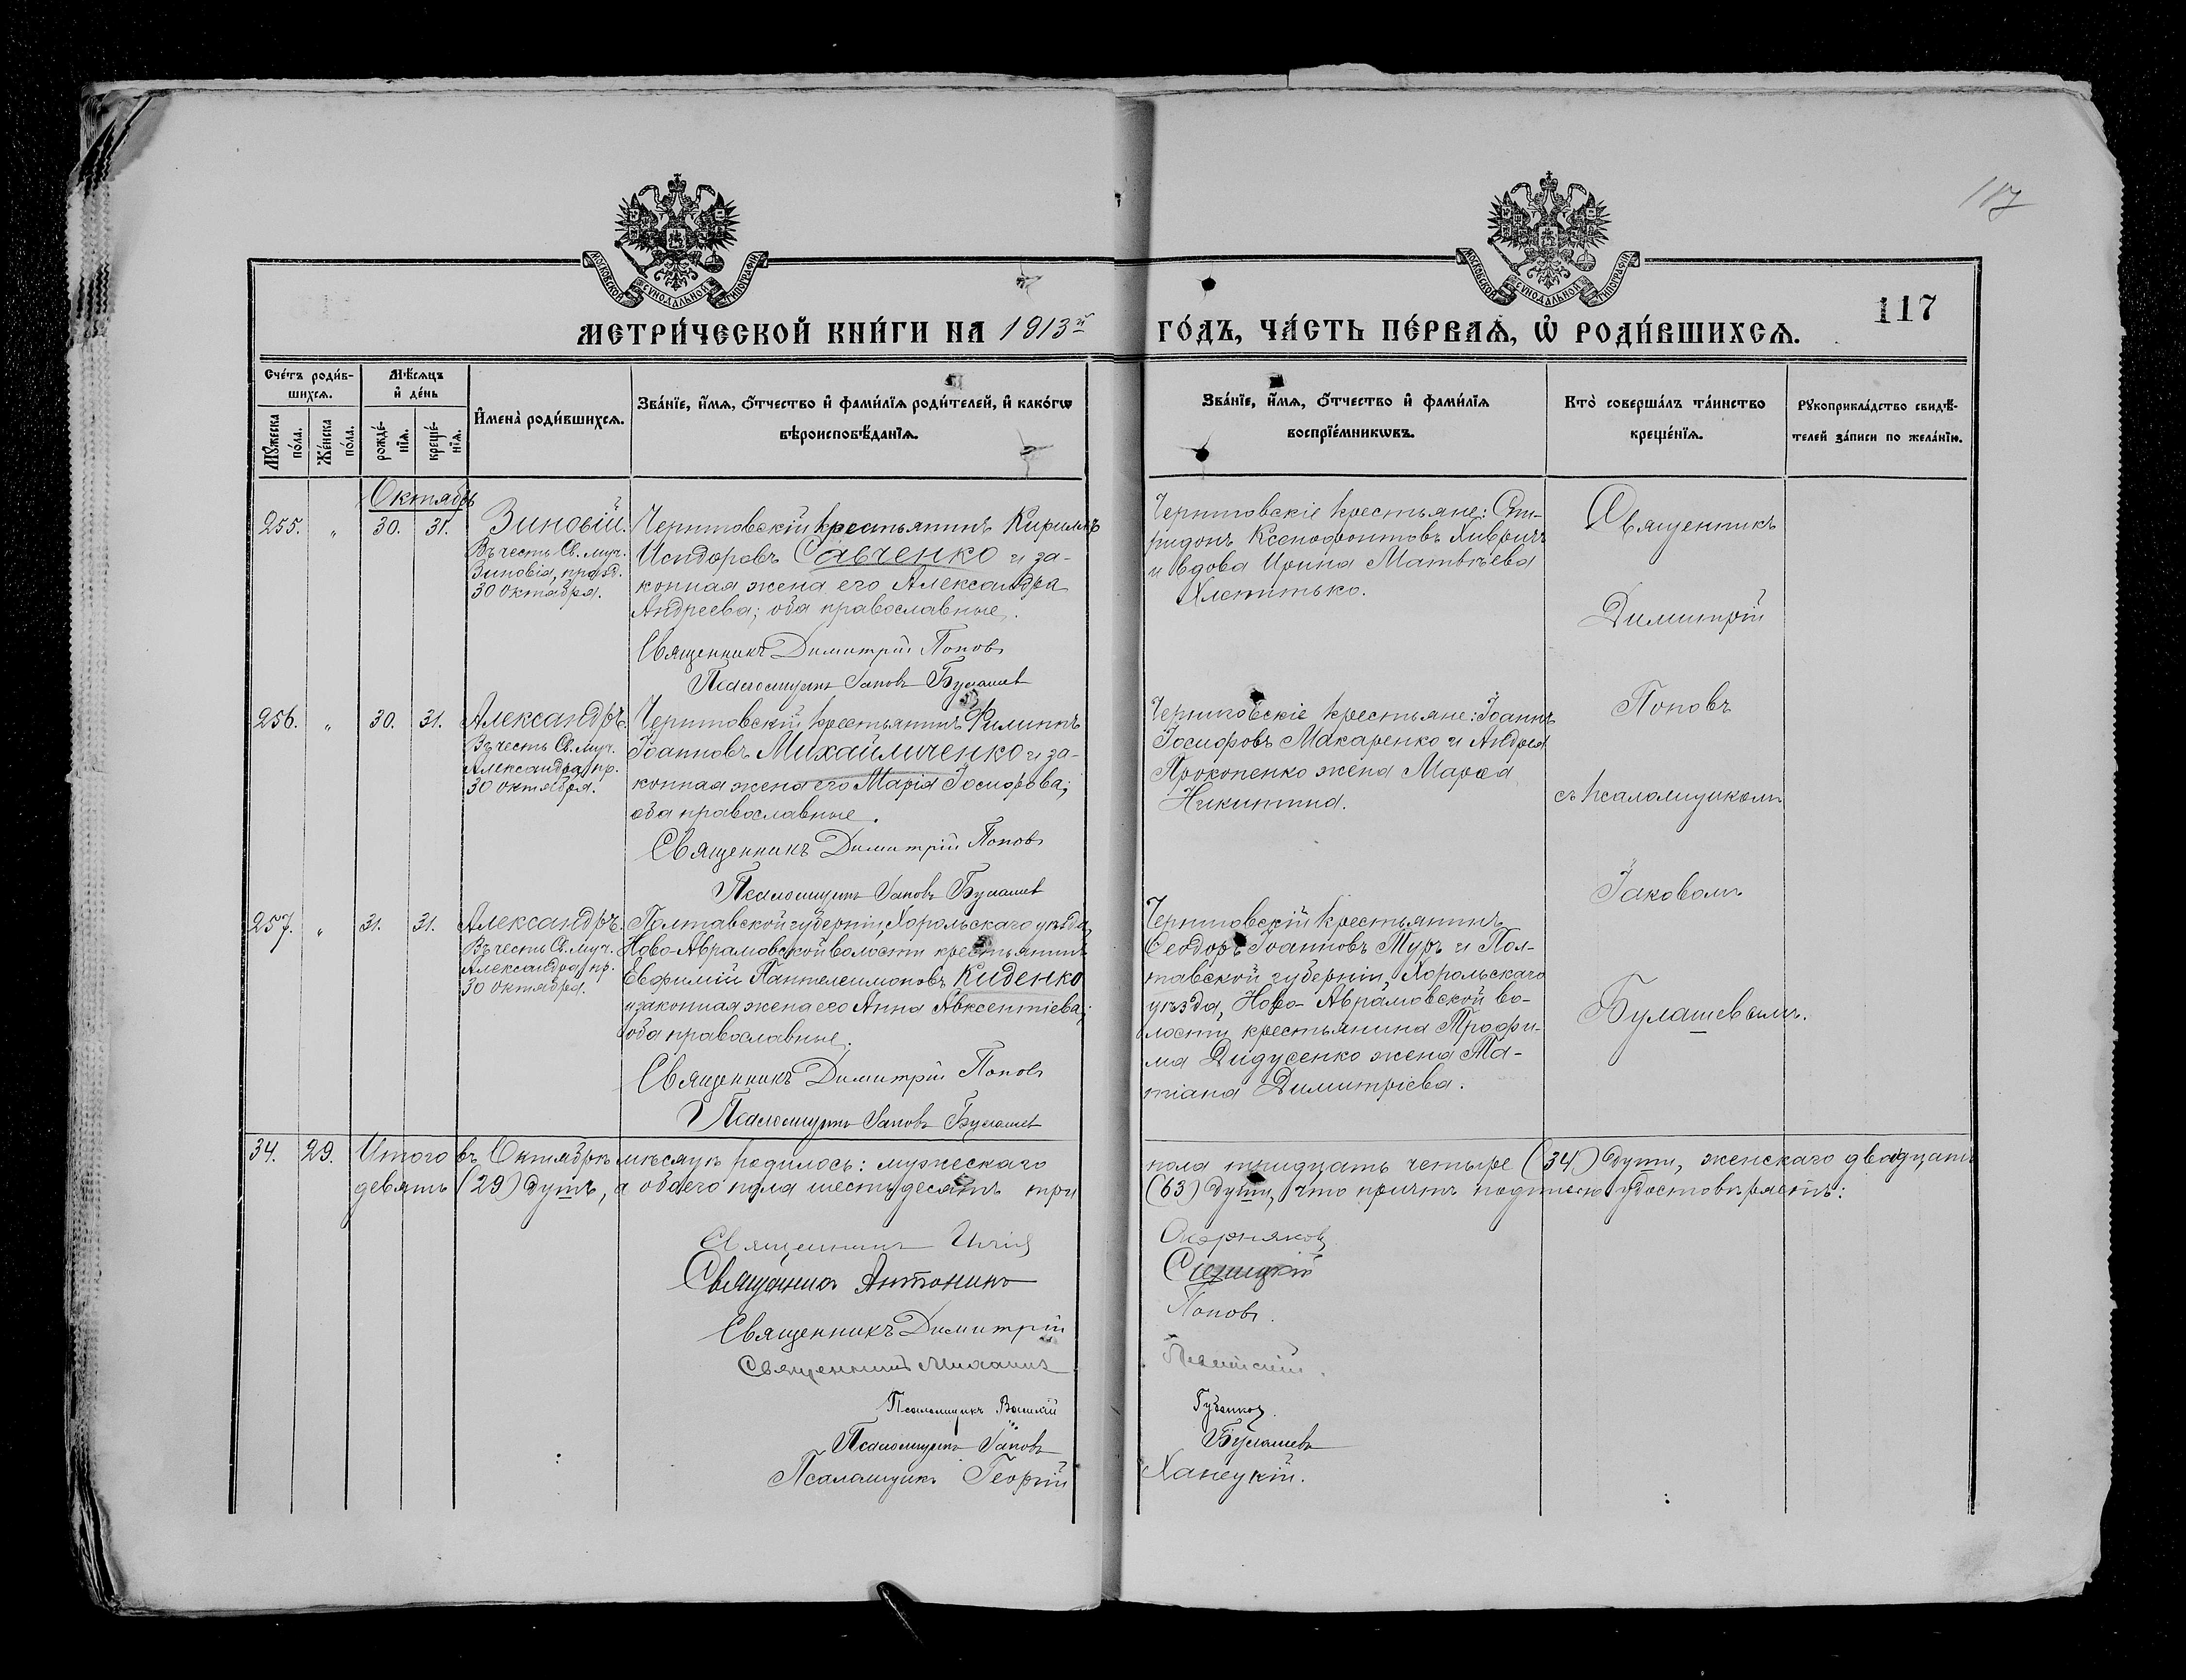 117
МОСКОВСКОЙ СѴНОДАЛЬНОЙ ТИПОГРАФІИ
МОСКОВСКОЙ СѴНОДАЛЬНОЙ ТИПОГРАФІИ
117
МЕТРИ́ЧЕСКОЙ КНИ́ГИ НА 1913й
ГО́ДЪ, ЧА́СТЬ ПЕ́РВАѦ, Ѡ҆ РОДИ́ВШИХСѦ.
Сче́тъ роди́в-
шихсѧ.
Мꙋ́жеска
по́ла.
Же́нска
пола.
Мѣ́сѧцъ
и҆ де́нь
рожде́-
нїѧ.
креще́-
нїѧ.
И҆мена̀ роди́вшихсѧ.
Зва́нїе, и҆́мѧ, ѻ҆́тчество и҆ фами́лїѧ роди́телей, и҆ како́гѡ
вѣроисповѣ́данїѧ.
Зва́нїе, и҆́мѧ, ѻ҆́тчество и҆ фами́лїѧ
воспрїе́мникѡвъ.
Кто̀ соверша́лъ та́инство
креще́нїѧ.
Рꙋкоприкла́дство свидѣ́-
телей за́писи по жела́нїю.
Октябрь
255. " 30. 31. Зиновій.
Въ честь Св. муч.
Зиновія, празд.
30 октября.
Черниговскій крестьянинъ Кириллъ
Исидоровъ Савченко и за-
конная жена его Александра
Андреева; оба православные.
Священникъ Димитрій Поповъ
Псаломщикъ Іаковъ Булашев
Черниговскіе крестьяне: Спи-
ридонъ Ксенофонтовъ
и вдова Ирина Матвѣева
256. " 30. 31. Александръ.
Въ честь Св. муч.
Александра, пр.
30 октября.
Черниговскій крестьянинъ Филиппъ
Іоанновъ Михайличенко и за-
конная жена его Марія Іосифова;
оба православные.
Священникъ Димитрій Поповъ
Псаломщикъ Іаковъ Булашев
Черниговскіе крестьяне: Іоаннъ
Іосифовъ Макаренко и Андрея
Прокопенко жена Марѳа
Никитина.
257. " 31. 31. Александръ.
Въ честь Св. муч.
Александра, пр.
30 октября.
Полтавской губерніи, Хорольскаго уѣзда,
Ново-Аврамовской волости крестьянинъ
Евфимій Пантелеимоновъ Киденко
и законная жена его Анна Авксентіева;
оба православные.
Священникъ Димитрій Поповъ
Псаломщикъ Іаковъ Булашев
Черниговскій крестьянинъ
Ѳеодоръ Іоанновъ Туръ и Пол-
тавской губерніи, Хорольскаго
уѣзда, Ново-Аврамовской во-
лости крестьянина Трофи-
ма Дидусенко жена Та-
тіана Димитріева.
Священникъ
Димитрій
Поповъ
съ псаломщикомъ
Іаковомъ
Булашевымъ.
34. 29. Итого въ Октябрѣ мѣсяцѣ родилось: мужескаго
пола тридцать четыре (34) души, женскаго двадцать
девять (29) душъ, а обоего пола шестьдесятъ три
(63) души, что причтъ подписью удостовѣряетъ:
Священникъ Илія
Священникъ Антонинъ
Священникъ Димитрій
Поповъ.
Священникъ Михаилъ
Псаломщикъ Василій
Губенков.
Псаломщикъ Іаковъ
Булашевъ
Псаломщикъ Георгій
Ханецкій.